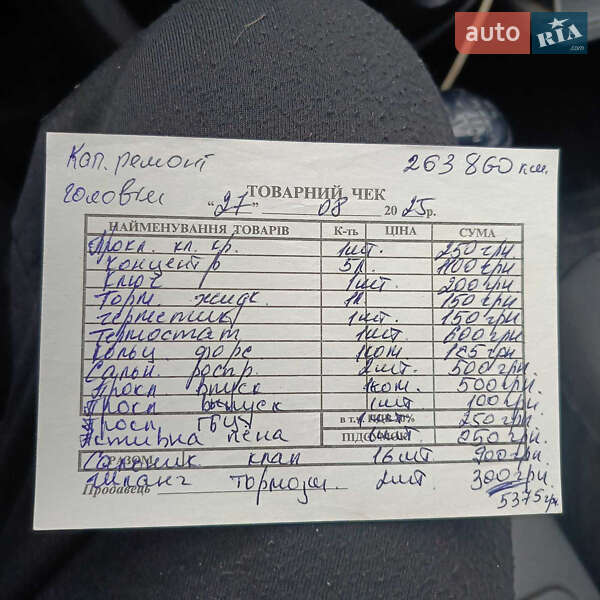 auto RIA .com
Кап. ремонт 263 860 км.
головки
ТОВАРНИЙ ЧЕК
"27" 08 2025р.
НАЙМЕНУВАННЯ ТОВАРІВ К-ть ЦІНА СУМА
Прокл. кл. кр. 1шт. 250грн
Концентр 5л. 1100грн
Ключ 1шт. 200грн
Торм. жидк. 1л 150грн
герметик 1шт. 150грн
Термостат 1шт 600грн
Кольц форс 1ком 185грн
Сальн. распр. 2шт. 500грн
Прокл впуск 1ком. 500грн.
Прокл выпуск 1шт 100грн.
Прокл ГБЦ 1шт. в т.ч. ПДВ 20% 250грн.
пена ПІДСУМОК 250грн.
РАЗОМ Сальник клап 16шт 900грн.
Шланг тормозн. 2шт. 300грн.
Продавець 5375грн.